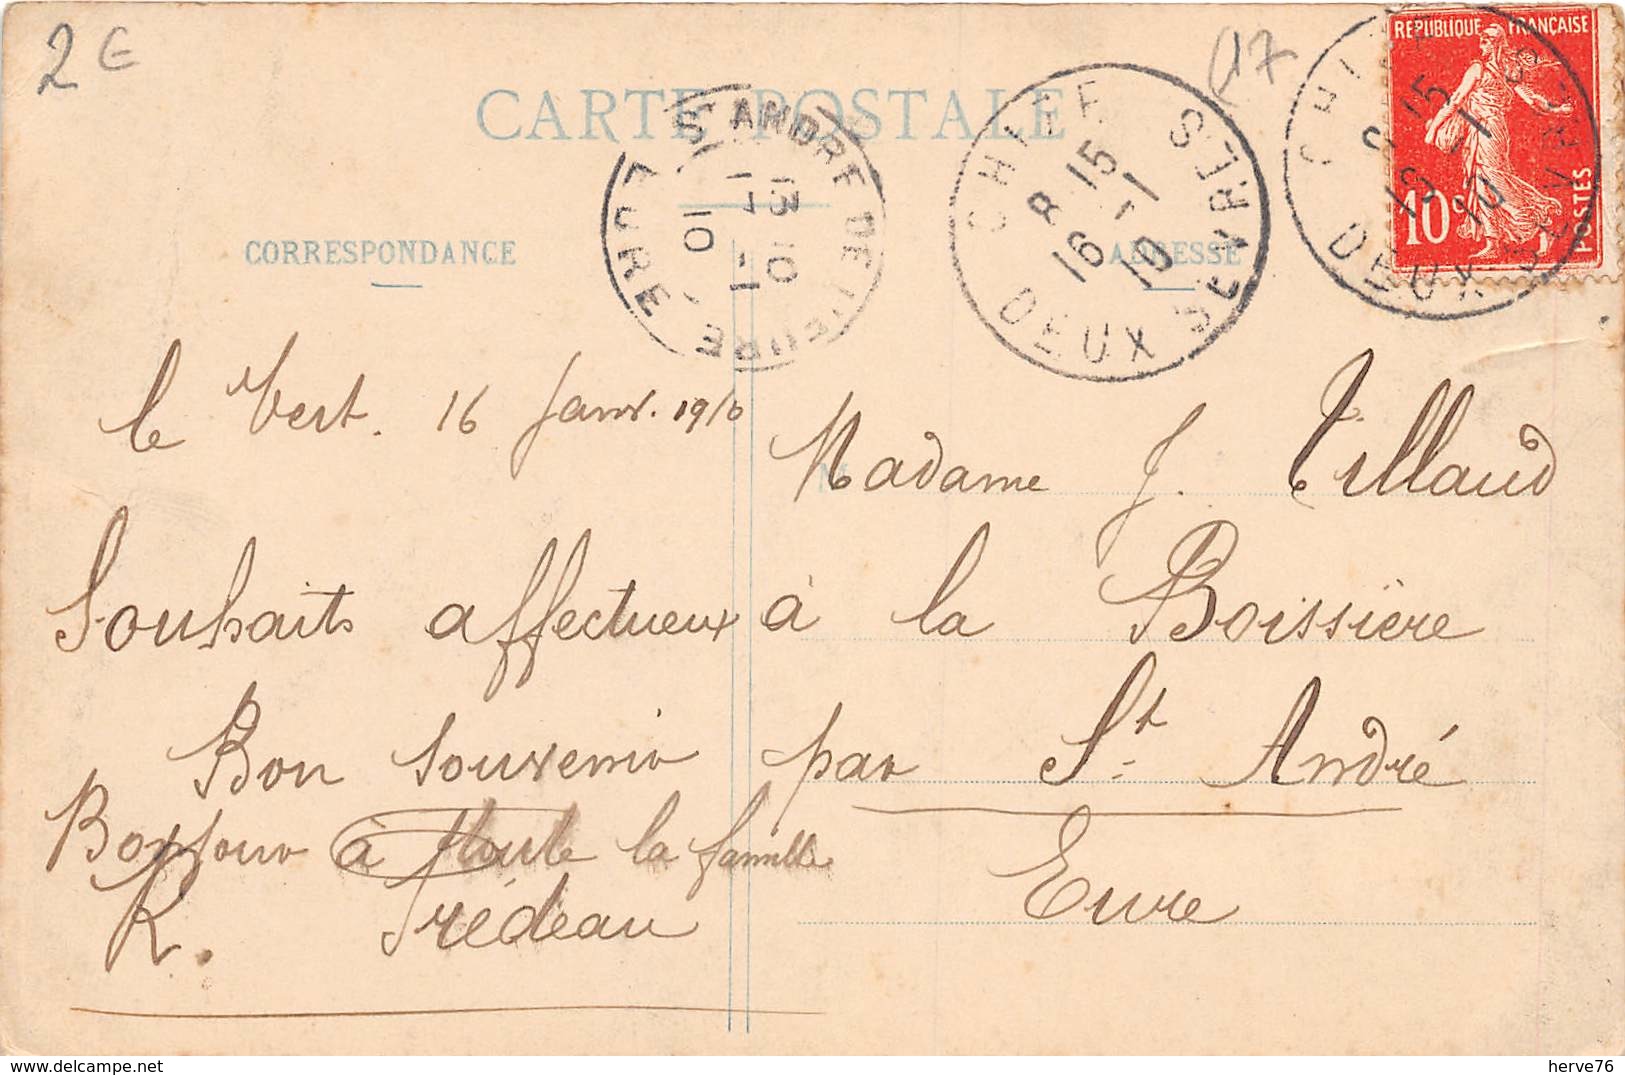 2 €
CARTE POSTALE
CORRESPONDANCE
ADRESSE
REPUBLIQUE FRANÇAISE
10 c
POSTES
ST ANDRE DE L'EURE
EURE
13 10
17 - 1
10
CHIZE
8 15
16 - 1
10
DEUX SEVRES
CHIZE
8 15
16 - 1
10
DEUX SEVRES
le Vert. 16 Janv. 1910
Souhaits affectueux
Bon souvenir
Bonjour à toute la famille
R. Trédeau
Madame J. Tillaud
à la Boissière
par St. André
Eure
www.delcampe.net
herve76